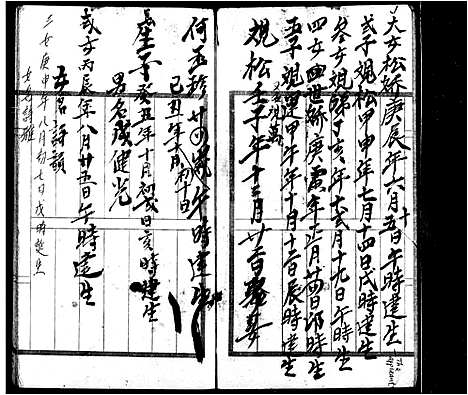 大女松嬌庚辰年六月十五日午時建生
弍子觀松甲申年七月十四日戌時建生
叁女觀娣丁亥年十弍月十九日午時生
四女血世嬌庚寅年正月廿四日卯時生
五子觀運甲午年十月十二日辰時建生
觀松壬子年十二月廿 日
何丞 廿四歲 午時建生
己丑年六月初十日
長 生子癸丑年十月初弍日亥時建生
男名茂健光
弍女丙辰年八月廿五日午時建生
女名詩韻
三女庚申年八月初七日戌時建生
女名詩雅